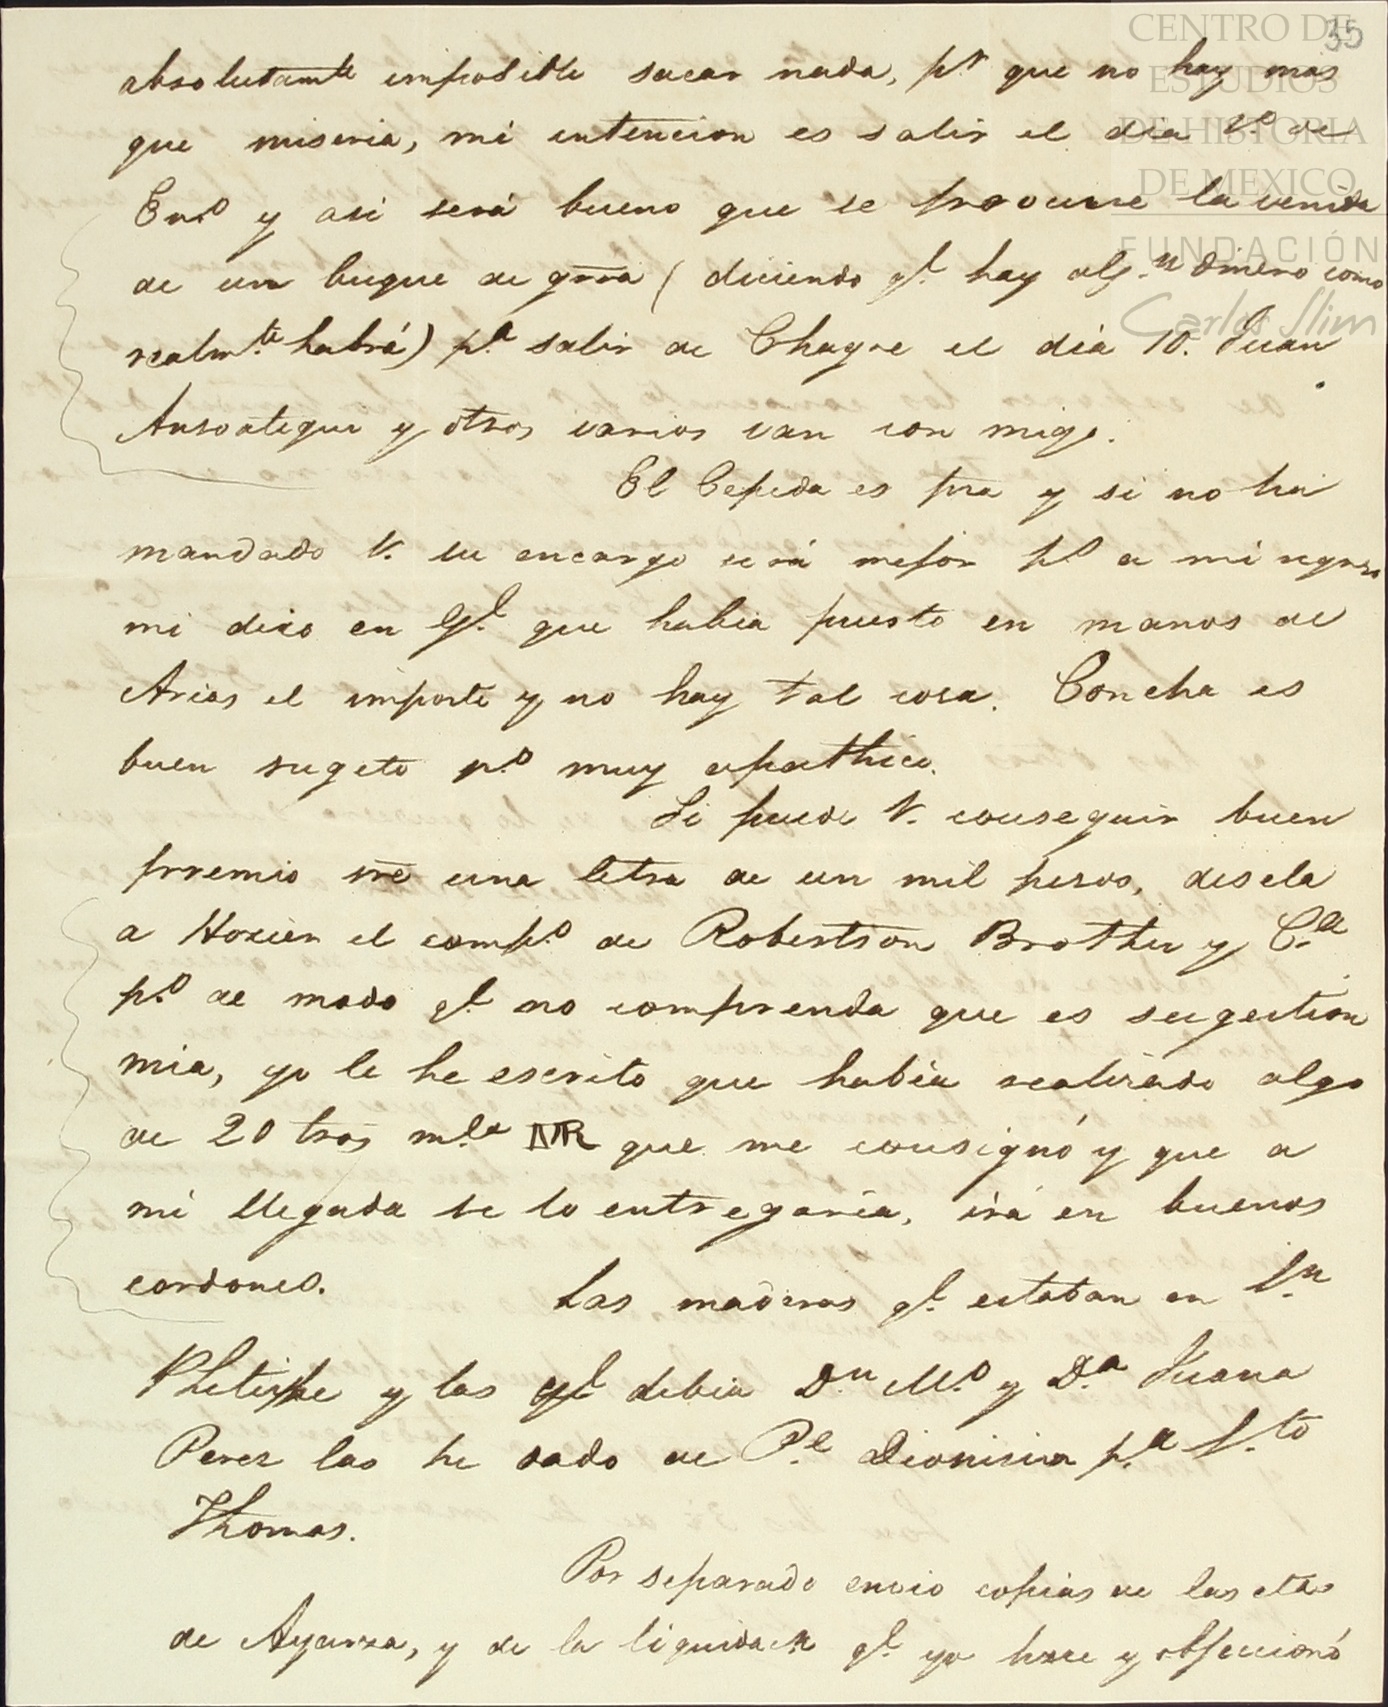 35
CENTRO DE
ESTUDIOS
DE HISTORIA
DE MEXICO
FUNDACIÓN
Carlos Slim
absolutamte imposible sacar nada, pr que no hay mas
que miseria, mi intencion es salir el dia 1.o de
En.o y asi será bueno que se procure la venida
de un buque de grra (diciendo q.l hay alg.n dinero como
realm.te habrá) p.a salir de Chagre el dia 10. Juan
Ansoategui y otros varios van con migo.
El Cepeda es pra y si no ha
mandado V. su encargo será mejor p.o a mi regreso
mi dixo en q.l que habia puesto en manos de
Arias el importe y no hay tal cosa. Concha es
buen sugeto p.o muy apathico.
Si puede V. conseguir buen
premio sre una letra de un mil pesos, desela
a Hozier el comp.o de Robertson Brother y C.a
p.o de modo q.l no comprenda que es sugestion
mia, yo le he escrito que habia realizado algo
de 20 tros m.la NR que me consignó y que a
mi llegada se lo entregaria, irá en buenos
cordones.
Las maderas q.l estaban en S.n
Phelipe y las q.l debia D.n M.o y D.a Juana
Perez las he dado de P.l Dionisia p.a S.to
Thomas.
Por separado envio copias de las ctas
de Ayarza, y de la liquidacn q.l yo hice y obseccionó